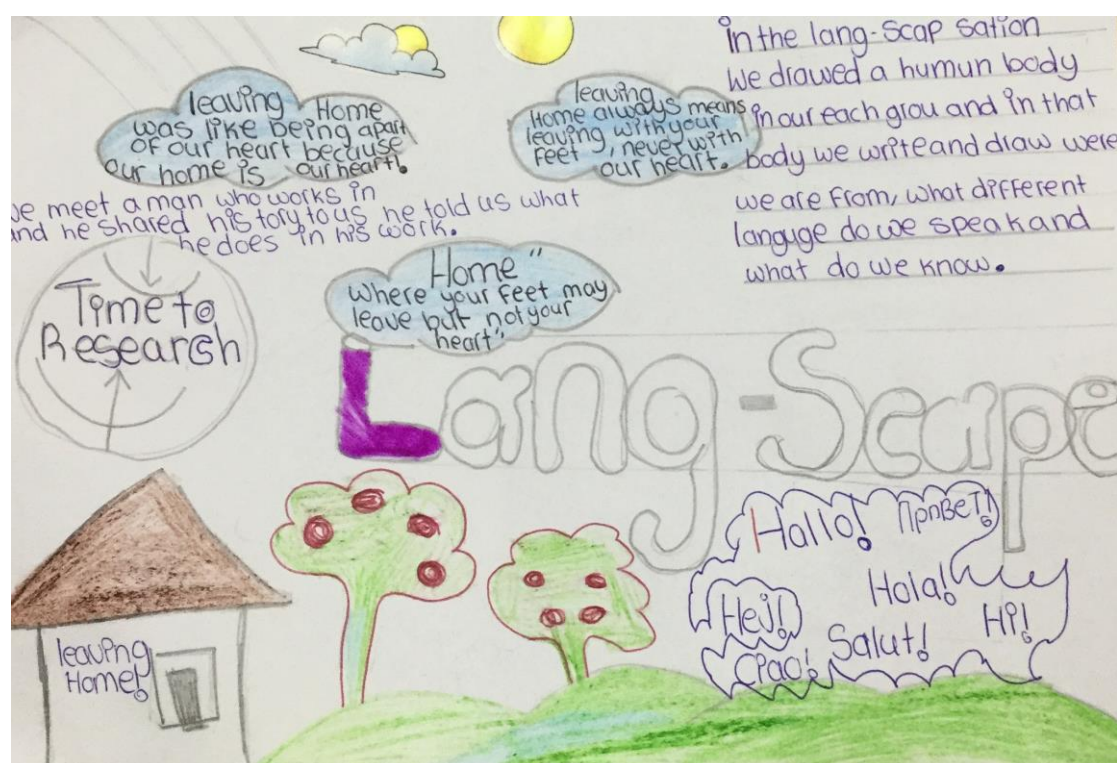 leaving Home
was like being apart
of our heart because
our home is our heart!
leaving
Home always means
leaving with your
feet, never with
our heart.
in the lang-scap sation
We drawed a humun body
in our each grou and in that
body we write and draw were
we are from, what different
languge do we speak and
what do we know.
we meet a man who works in
and he shared his tory to us he told us what
he does in his work.
Time to
Research
Home"
where your feet may
leave but not your
heart"
Lang-Scape
leaving
Home!
Hallo! Привет!
Hej! Hola! Hi!
Ciao! Salut!